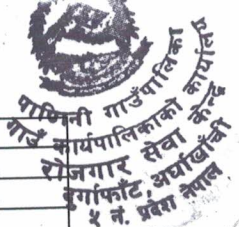 पाणिनी गाउँपालिका
गाउँ कार्यपालिकाको कार्यालय
रोजगार सेवा केन्द्र
दुर्गाफाँट, अर्घाखाँची
५ नं. प्रदेश नेपाल